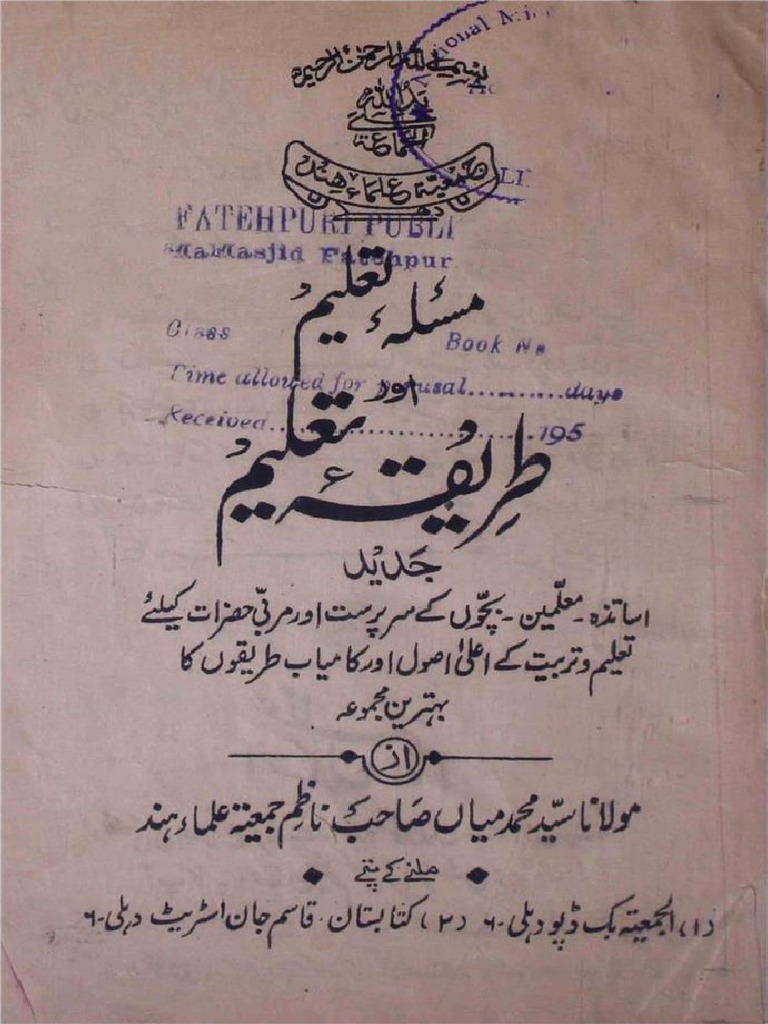 بسم اللہ الرحمن الرحیم
ید اللہ
علی
الجماعۃ
جمعیۃ علماء ہند
National
FATEHPURI PUBLI
Masjid Fatehpur
مسئلۂ تعلیم
Class Book No
اور
Time allowed for perusal..........days
Received..............................195
طریقۂ تعلیم
جدید
اساتذہ۔ معلّمین۔ بچّوں کے سرپرست اور مربّی حضرات کیلئے
تعلیم و تربیت کے اعلیٰ اصول اور کامیاب طریقوں کا
بہترین مجموعہ
از
مولانا سیّد محمد میاں صاحب ناظم جمعیۃ علماء ہند
ملنے کے پتے
(۱) الجمعیۃ بک ڈپو دہلی۔۶ (۲) کتابستان۔ قاسم جان اسٹریٹ دہلی۔۶